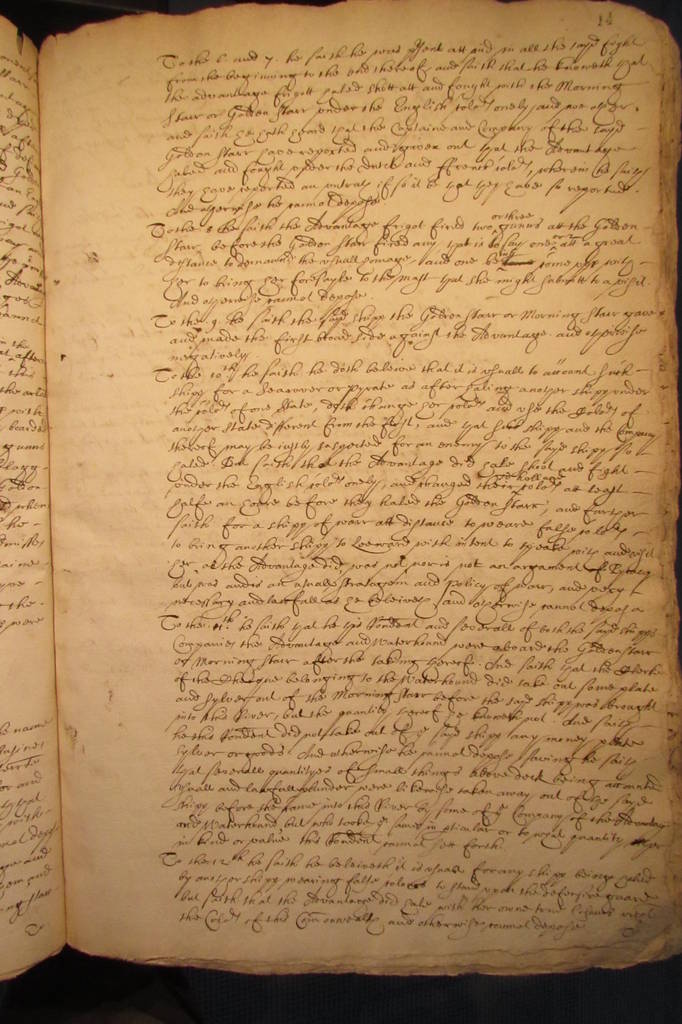 14
To the 6 and 7. he saith he was present att and in all the sayd fight
from the beginning to the end thereof and saith that he knoweth that
the advantage frigott haled shott att and fought with the Morning
Starr or Golden Starr under the English colors onely and noe other.
and saith he hath heard that the Captaine and Company of the sayd
Golden Starr have reported and given out that the Advantage
haled and fought under the Dutch and ffrench colors, wherein he saith
they have reported an untruth if so it be that they have so reported.
And otherwise he cannot depose
To the 8 he saith the Advantage frigot fired two or three gunns att the Golden
Starr before the Golden Starr fired any that is to say one or two att a great
distance to demannd the usuall homage and one
her to bring her foresayle to the mast that she might submitt to a visit.
And otherwise cannot depose.
To the 9. he saith the sayd shipp the Golden Starr or Morning Starr gave
and made the first broad side against the Advantage. and otherwise
negatively.
To the 10th he saith he doth beleeve that it is usuall to accound such
shipp for a searover or pyrate as after haling another shipp under
the colors of one State, doth change her colors and use the Colors of
another State different from the first, and that such shipp and the Company
thereof may be justly suspected for an enemy to the sayd shipp so
haled. But saith that the Advantage did hale shoot and fight
under the English colors onely, and changed their colors att least
halfe an howre before they haled the Golden Starr, and further
saith for a shipp of warr att distance to weare false colors
to bring another shipp to Leeward with intent to speake with and visit
her, as the Advantage did, was not nor is not an argument of Piracy
but was and is an usuall stratagem and policy of warr, and very
necessary and lawfull as he beleiveth and otherwise cannot depose
To the 11th. he saith that he this Rendent and severall of both the sayd shipps
Companies the Advantage and Waterhound were aboard the Golden Starr
or Morning Starr after the taking thereof. And saith that the Clerke
of the Cheque belonging to the Waterhound did take out some plate
and sylver out of the Morning Starr before the sayd shipp was brought
into this River, but the quantity thereof he knoweth not. And saith
he this Rendent did not take out of the sayd shipp any money plate
sylver or goods. And otherwise he cannot depose saving he saith
that severall quantityes of small things above deck being accounted
usuall and lawfull plunder were likewise taken away out of the sayd
shipp before she came into this River by some of the Company of the Advantage
and Waterhound but who tooke the same in pticular or to what quantity
in kind or value this Rendent cannot sett forth.
To the 12th he saith he beleiveth it is usuall for any shipp beinge haled
by another shipp wearing false colors to stand upon the defensive guard
but saith that the Advantage did hale with her owne true Colours
the Colors of this Comonwealth and otherwise cannot depose